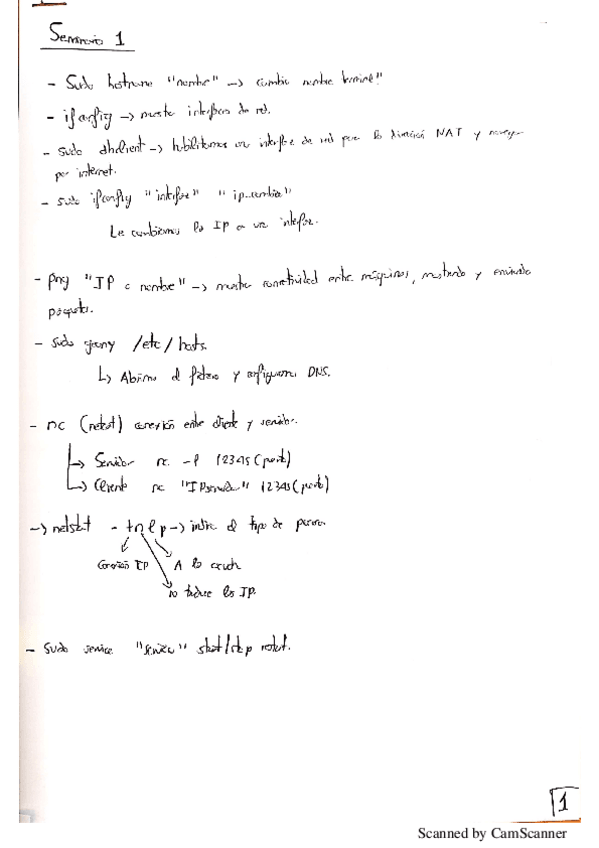 Seminario 1
- Sudo hostname "nombre" -> cambia nombre terminal
- ifconfig -> muestra interfaces de red.
- sudo dhclient -> habilitamos una interfaz de red para la dirección NAT y navegar
por internet.
- sudo ifconfig "interfaz" "ip_cambia"
Le cambiamos la IP a una interfaz.
- ping "IP o nombre" -> muestra conectividad entre máquinas, mostrando y enviando
paquetes.
- sudo /etc/hosts.
↳ Abrimos el fichero y configuramos DNS.
- nc (netcat) conexión entre cliente y servidor.
-> Servidor nc -l 12345 (puerto)
-> Cliente nc "IPservidor" 12345 (puerto)
-> netstat - tnlp -> el tipo de
Conexión TCP A la escucha
no traduce las IP.
- Sudo service "servicio" start/stop restart.
1
Scanned by CamScanner